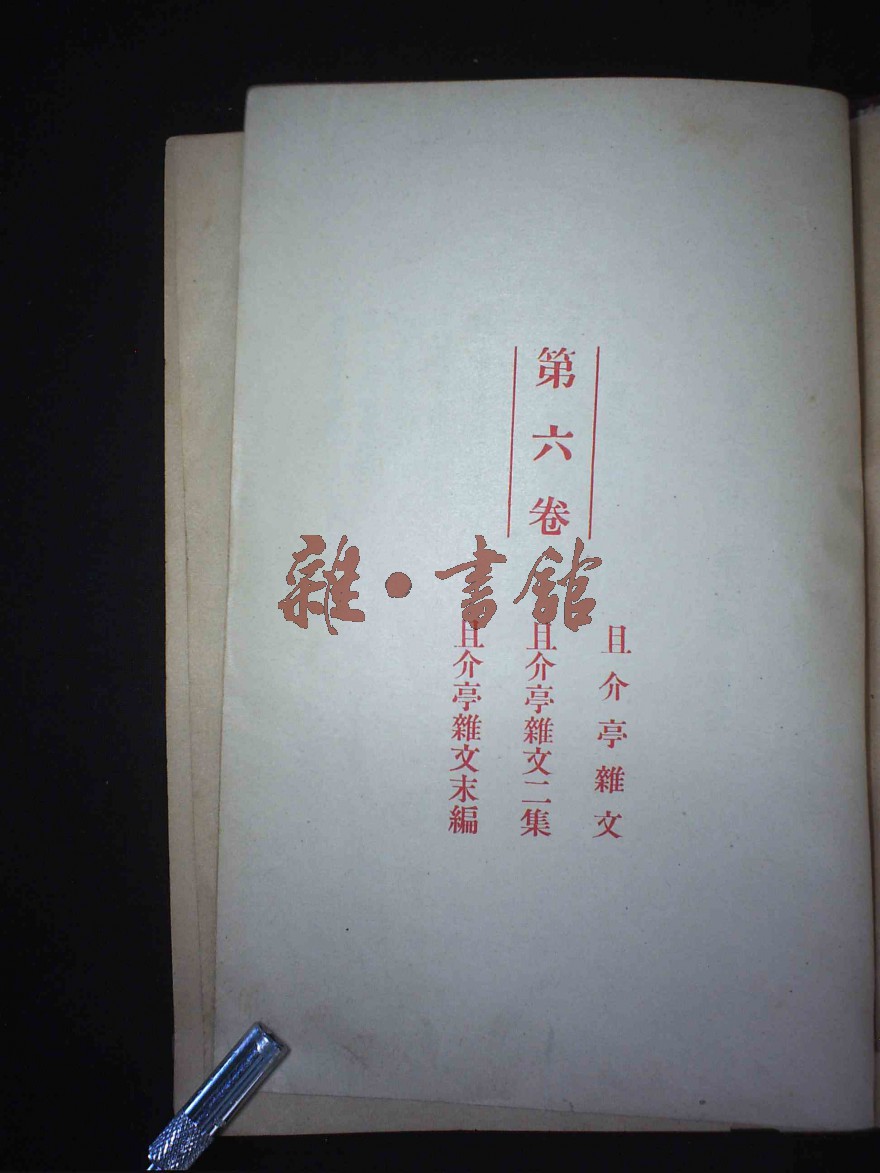 第六卷
且介亭雜文
且介亭雜文二集
且介亭雜文末編
雜·書館